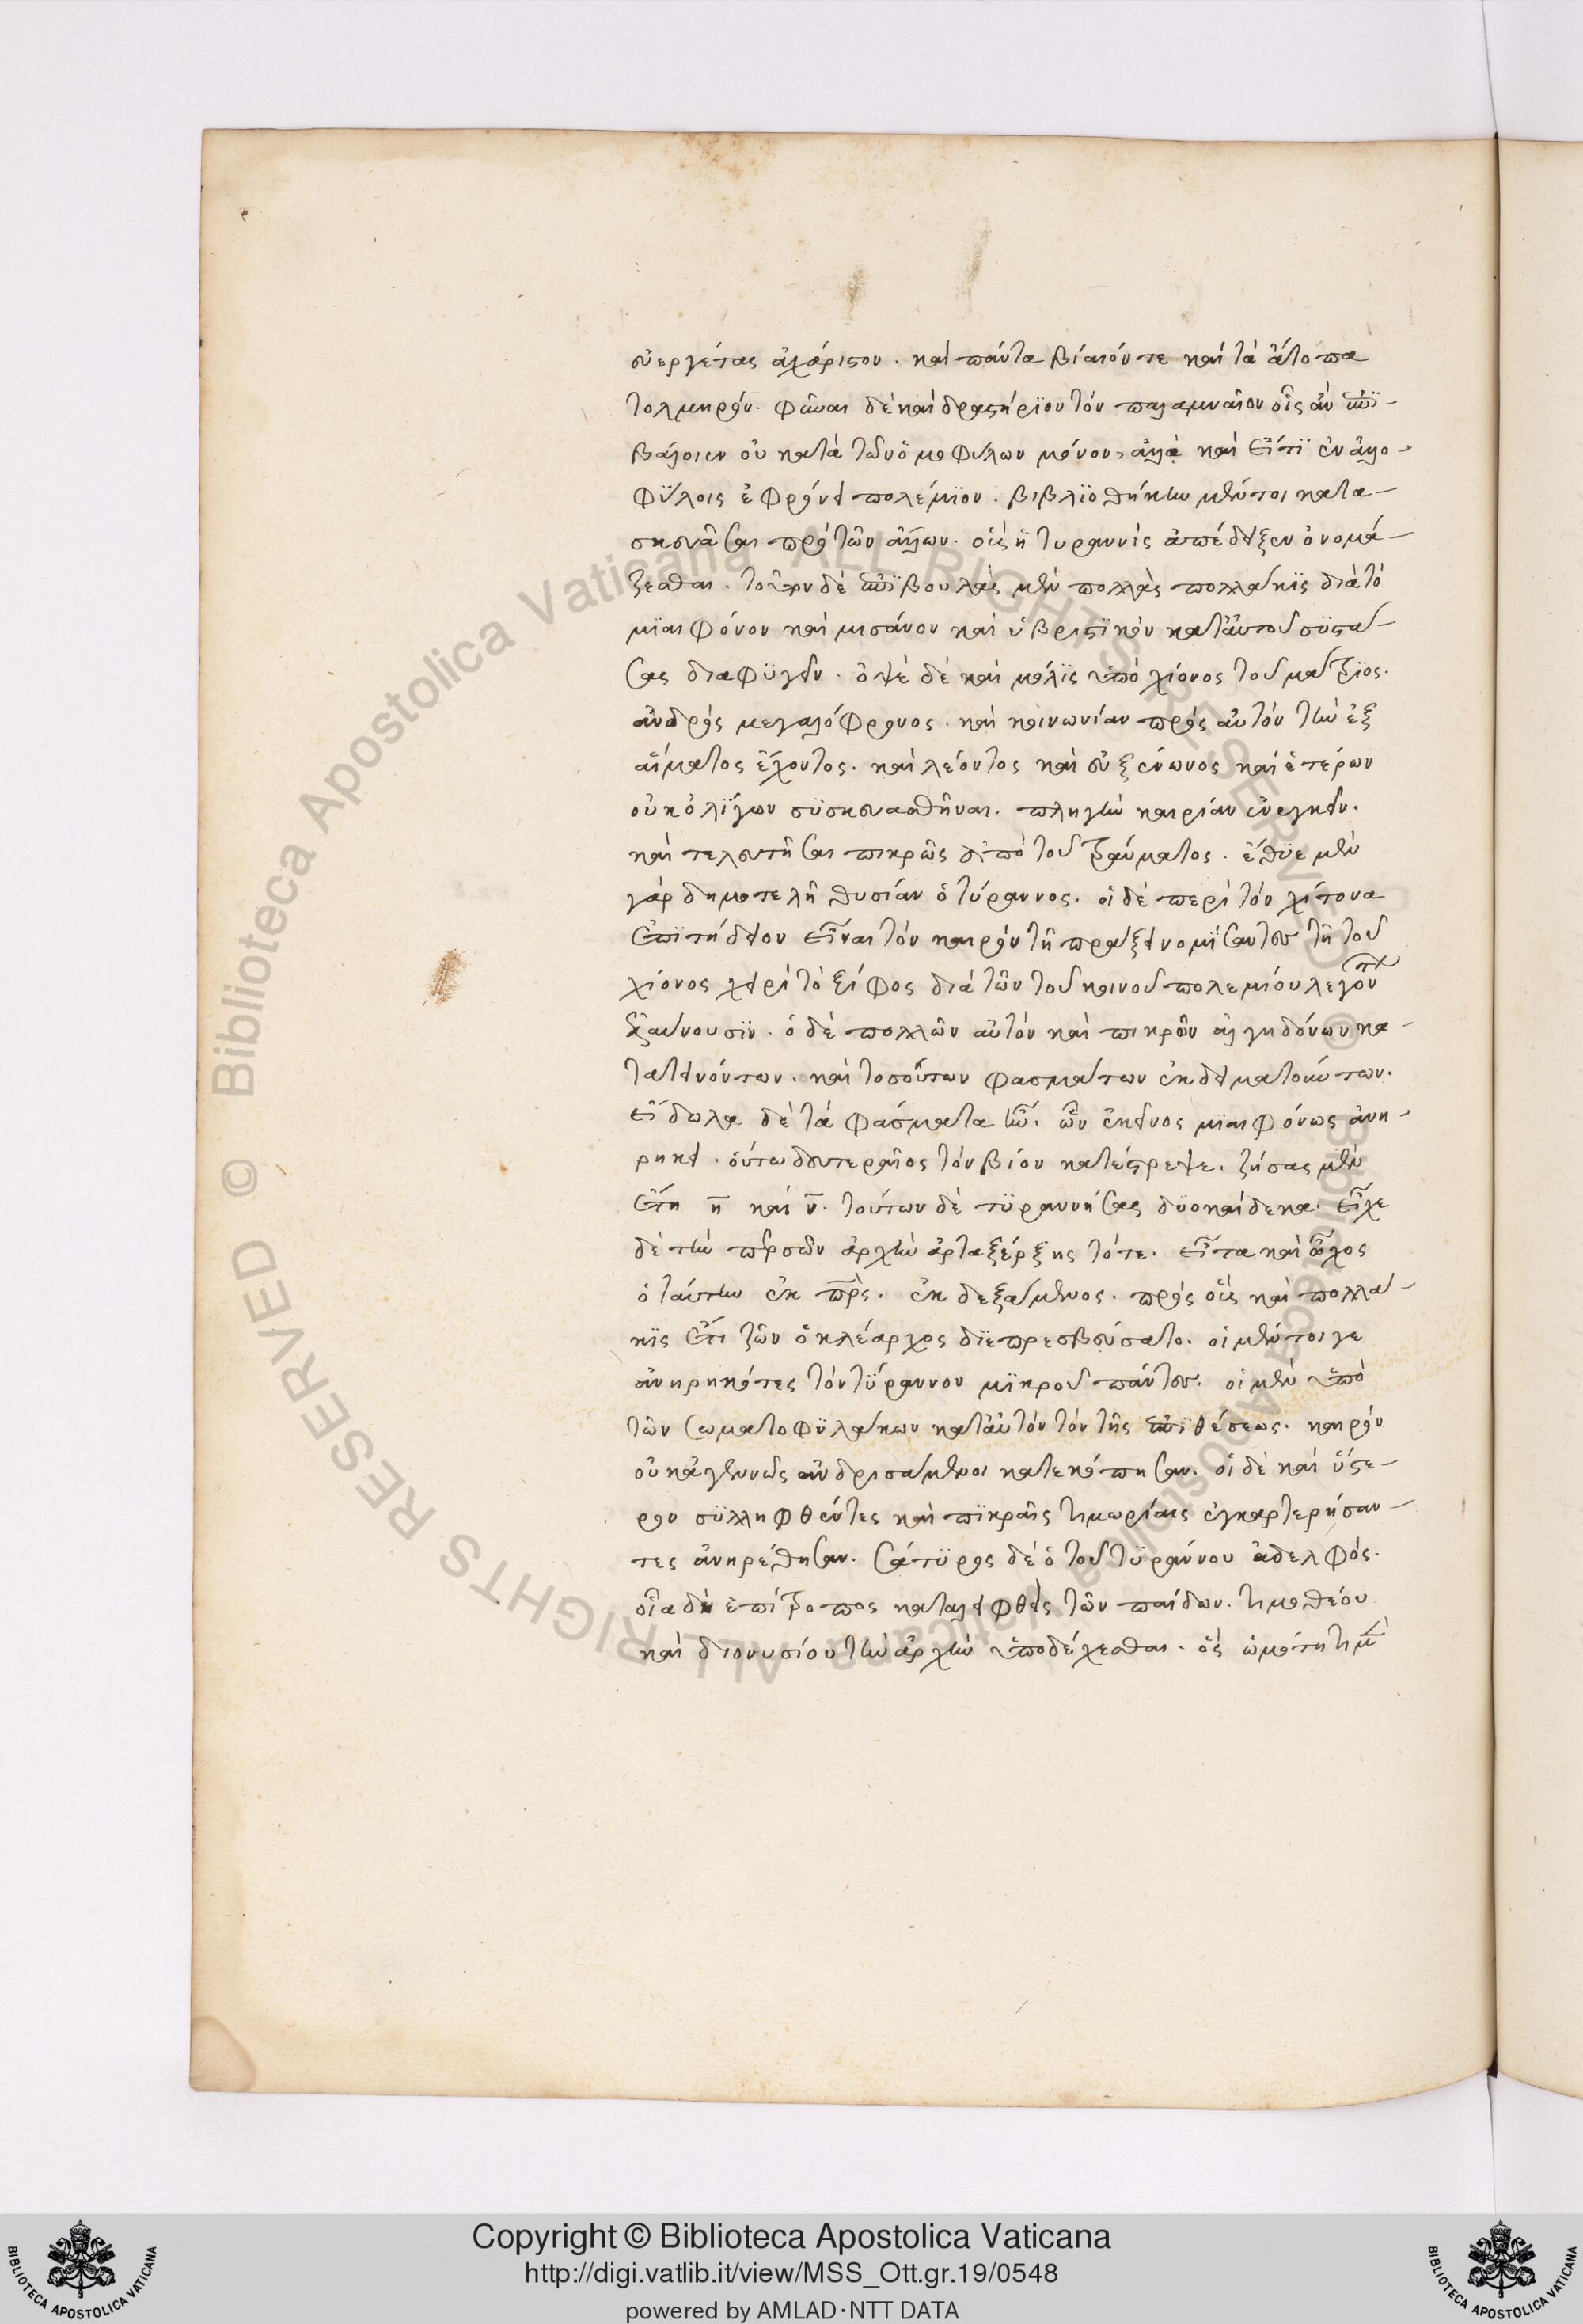 εὐεργέτας ἀχάριστον. καὶ πάντα βίαιόν τε καὶ τὰ ἄτοπα
τολμηρόν. φῦναι δὲ καὶ δραστήριον τὸν παλαμναῖον οἷς ἂν ἐπϊ-
βάλοιεν οὐ κατὰ τῶν ὁμοφύλων μόνον, ἀλλὰ καὶ εἴ τϊ ἐν ἀλλο-
φΰλοις ἐφρόνει πολέμϊον. βιβλϊοθήκην μέντοι κατα-
σκευᾶσαι πρὸ τῶν ἄλλων. οἷς ἡ τυραννὶς ἀπέδειξεν ὀνομά-
ζεσθαι. τοῦτον δὲ ἐπϊβουλὰς μὲν πολλὰς πολλάκϊς διὰ τὸ
μϊαιφόνον καὶ μισάνον καὶ ὑβριστϊκὸν κατ' αὐτοῦ συστά-
σας διαφΰγειν. ὀψὲ δὲ καὶ μόλϊς ὑπὸ χίονος τοῦ μάτρϊος.
ἀνδρὸς μεγαλόφρονος. καὶ κοινωνίαν πρὸς αὐτὸν τὴν ἐξ
αἵματος ἔχοντος. καὶ λέοντος καὶ εὐξένωνος καὶ ἑτέρων
οὐκ ὀλίγων συσκευασθῆναι. πληγὴν καιρίαν ἐνεγκεῖν.
καὶ τελευτῆσαι πικρῶς ἀπὸ τοῦ τραύματος. ἔθυε μὲν
γὰρ δημοτελῆ θυσίαν ὁ τύραννος. οἱ δὲ περὶ τὸν χίτονα
ἐπϊτήδειον εἶναι τὸν καιρὸν τῇ πράξει νομίσαντες τῇ τοῦ
χίονος χειρὶ τὸ ξίφος διὰ τῶν τοῦ κοινοῦ πολεμίου λεγόν
ἐλαύνουσϊν. ὁ δὲ πολλῶν αὐτὸν καὶ πικρῶν ἀλγηδόνων κα-
τατεινόντων. καὶ τοσούτων φασμάτων ἐκδειματούντων.
εἴδωλα δὲ τὰ φάσματα ἦν. ὧν ἐκεῖνος μϊαιφόνως ἀνη-
ρήκει. οὕτω δευτεραῖος τὸν βίον κατέστρεψε. ζήσας μὲν
ἔτη η̄ καὶ ν̄. τούτων δὲ τϋραννήσας δϋοκαίδεκα. εἶχε
δὲ τὴν περσῶν ἀρχὴν ἀρταξέρξης τότε. εἶτα καὶ ὦχος
ὁ ταύτην ἐκ πρς. ἐκδεξάμενος. πρὸς οὓς καὶ πολλά-
κϊς ἔτι ζῶν ὁ κλέαρχος δϊεπρεσβεύσατο. οἱ μέντοι γε
ἀνηρηκότες τὸν τΰραννον μϊκροῦ πάντες. οἱ μὲν ὑπὸ
τῶν σωματοφϋλάκων κατ' αὐτὸν τὸν τῆς ἐπϊθέσεως. καιρὸν
οὐκ ἀγεννῶς ἀνδρισάμενοι κατεκόπησαν. οἱ δὲ καὶ ὕστε-
ρον συλληφθέντες καὶ πϊκραῖς τιμωρίαις ἐγκαρτερήσαν-
τες ἀνηρέθησαν. σάτϋρος δὲ ὁ τοῦ τϋράννου ἀδελφός.
οἷα δὴ ἐπίτροπος καταλειφθεὶς τῶν παίδων. τιμοθέου
καὶ διονυσίου τὴν ἀρχὴν ὑποδέχεσθαι. ὃς ὠμότητι μὲν